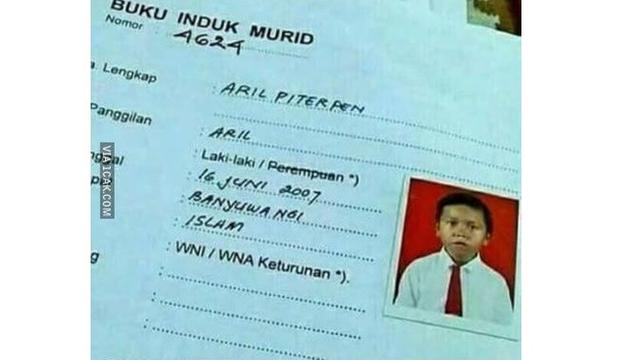 BUKU INDUK MURID
Nomor : 4624
Lengkap : ARIL PITERPEN
Panggilan : ARIL
: Laki-laki / Perempuan *)
: 16 JUNI 2007
: BANYUWANGI
: ISLAM
: WNI / WNA Keturunan *).
VIA 1CAK.COM